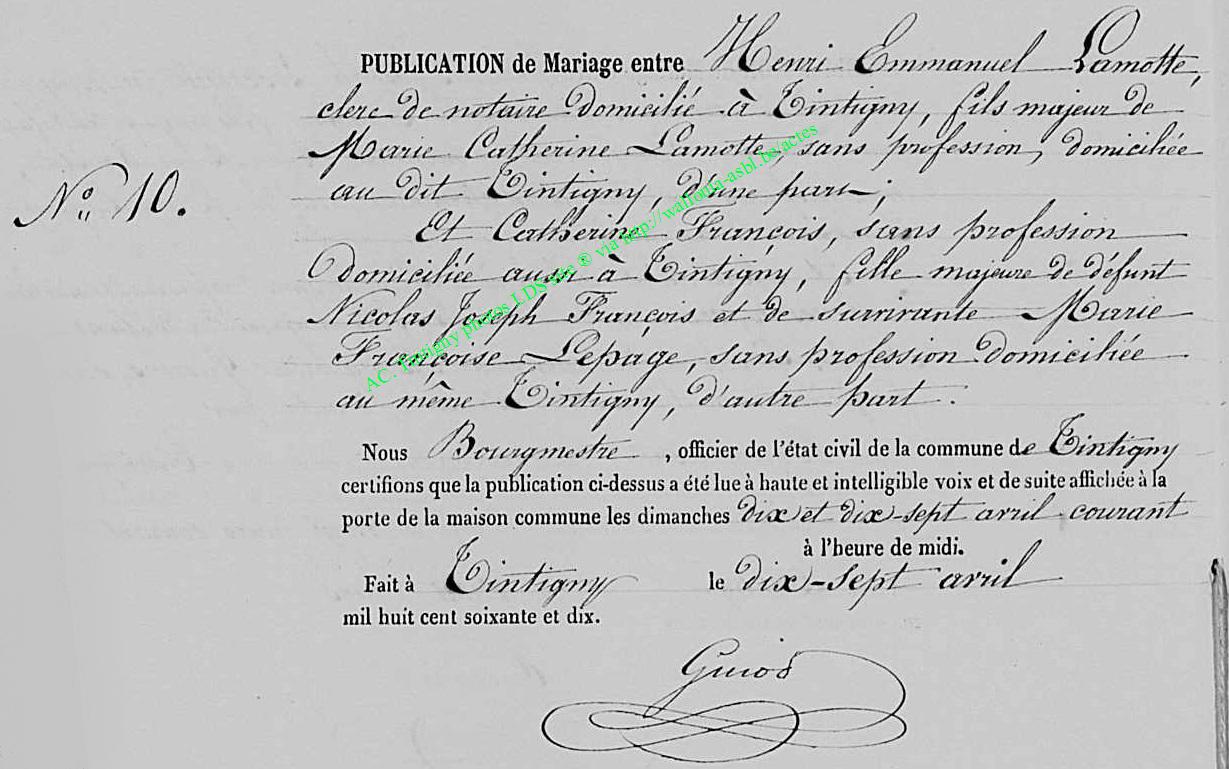 PUBLICATION de Mariage entre Henri Emmanuel Lamotte,
clerc de notaire domicilié à Tintigny, fils majeur de
Marie Catherine Lamotte, sans profession, domiciliée
au dit Tintigny, d'une part,;
N° 10.
Et Catherine François, sans profession
domiciliée aussi à Tintigny, fille majeure de défunt
Nicolas Joseph François et de survivante Marie
Françoise Lepage, sans profession domiciliée
au même Tintigny, d'autre part.
Nous Bourgmestre, officier de l'état civil de la commune de Tintigny
certifions que la publication ci-dessus a été lue à haute et intelligible voix et de suite affichée à la
porte de la maison commune les dimanches dix et dix-sept avril courant
à l'heure de midi.
Fait à Tintigny le dix-sept avril
mil huit cent soixante et dix.
Guiod
AC. Tintigny photos LDS site ® via http://wallonia-asbl.be/actes